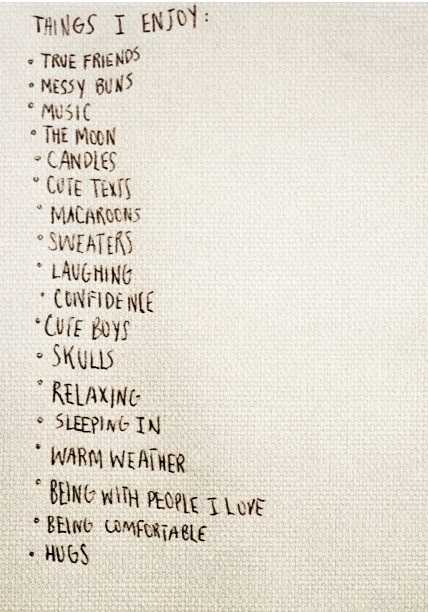 THINGS I ENJOY:
• TRUE FRIENDS
• MESSY BUNS
• MUSIC
• THE MOON
• CANDLES
• CUTE TEXTS
• MACAROONS
• SWEATERS
• LAUGHING
• CONFIDENCE
• CUTE BOYS
• SKULLS
• RELAXING
• SLEEPING IN
• WARM WEATHER
• BEING WITH PEOPLE I LOVE
• BEING COMFORTABLE
• HUGS